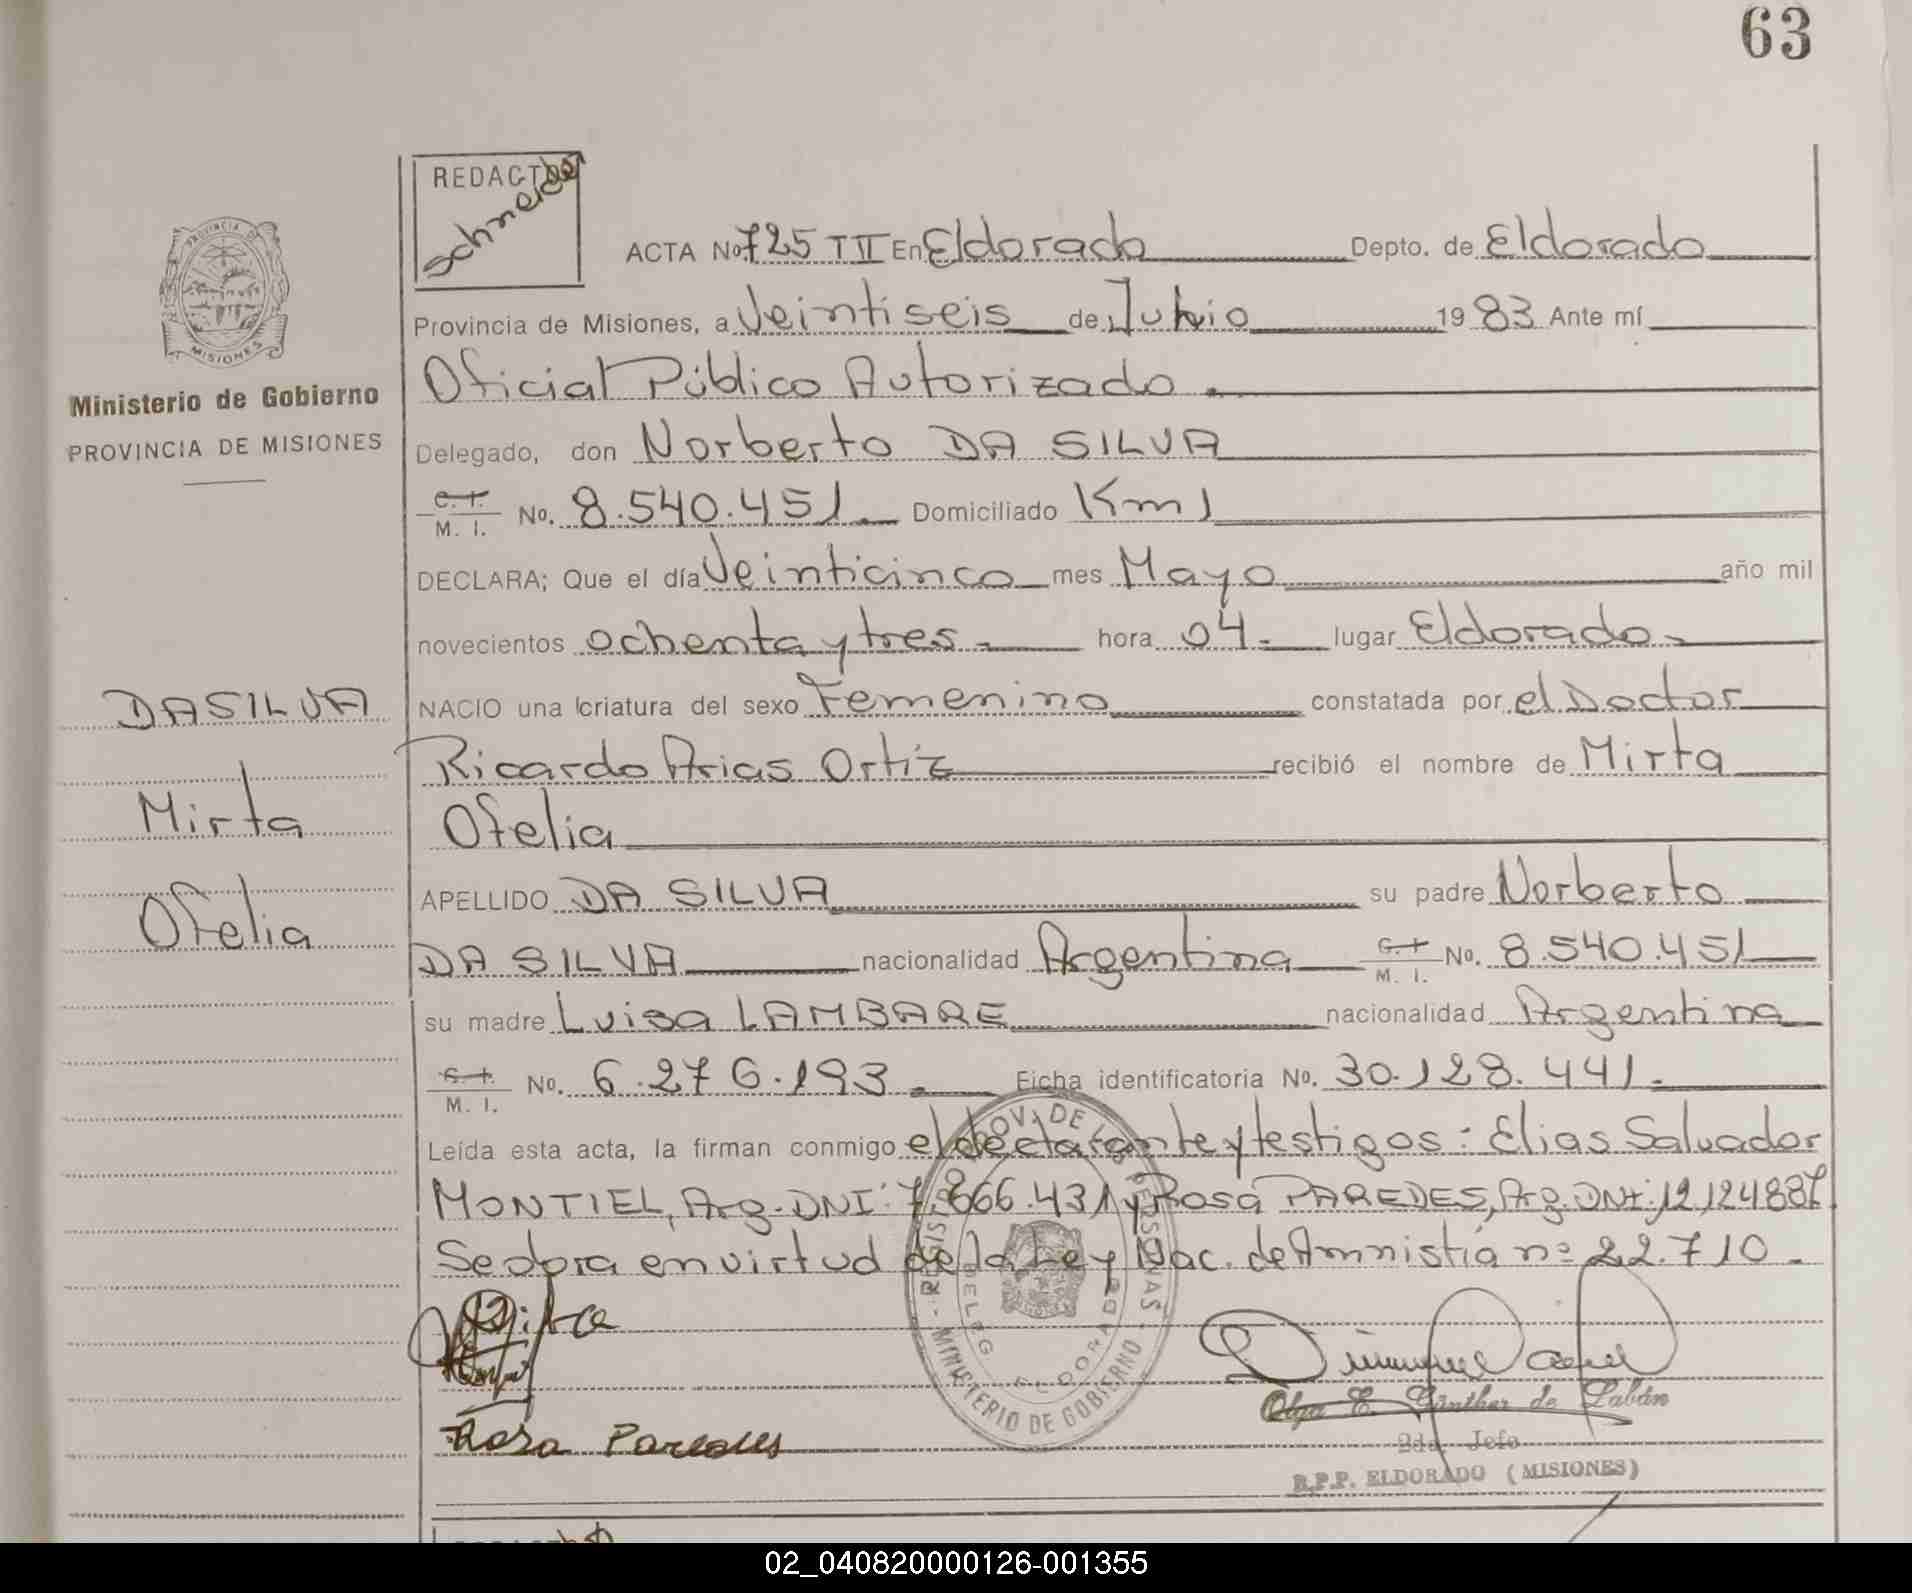 63
REDACTOR
Schneider
PROVINCIA DE
MISIONES
Ministerio de Gobierno
PROVINCIA DE MISIONES
DA SILVA
Mirta
Ofelia
ACTA No. 725 T II En Eldorado Depto. de Eldorado
Provincia de Misiones, a Veintiseis de 19 83 Ante mí
Oficial Público Autorizado.
Delegado, don Norberto DA SILVA
C. I. M. I. No. 8.540.451 Domiciliado Km 1
DECLARA; Que el día Veinticinco mes Mayo año mil
novecientos ochenta y tres.- hora 04.- lugar Eldorado-
NACIO una criatura del sexo Femenino constatada por el Doctor
Ricardo Arias Ortiz recibió el nombre de Mirta
Ofelia
APELLIDO DA SILVA su padre Norberto
DA SILVA nacionalidad Argentina C. I. M. I. No. 8.540.451
su madre Luisa LAMBARE nacionalidad Argentina
C. I. M. I. No. 6.276.193.- Ficha identificatoria No. 30.128.441.-
Leída esta acta, la firman conmigo el declarante y testigos: Elias Salvador
MONTIEL, Arg. DNI: 7.866.431 y Rosa PAREDES, Arg. DNI: 12.124887
Se obra en virtud de la Ley Nac. de Amnistía nº 22.710.-
MINISTERIO DE GOBIERNO
DELEG. ELDORADO
Rosa Paredes
Olga E. Günther de Labán
2da. Jefe
R.P.P. ELDORADO (MISIONES)
02_040820000126-001355